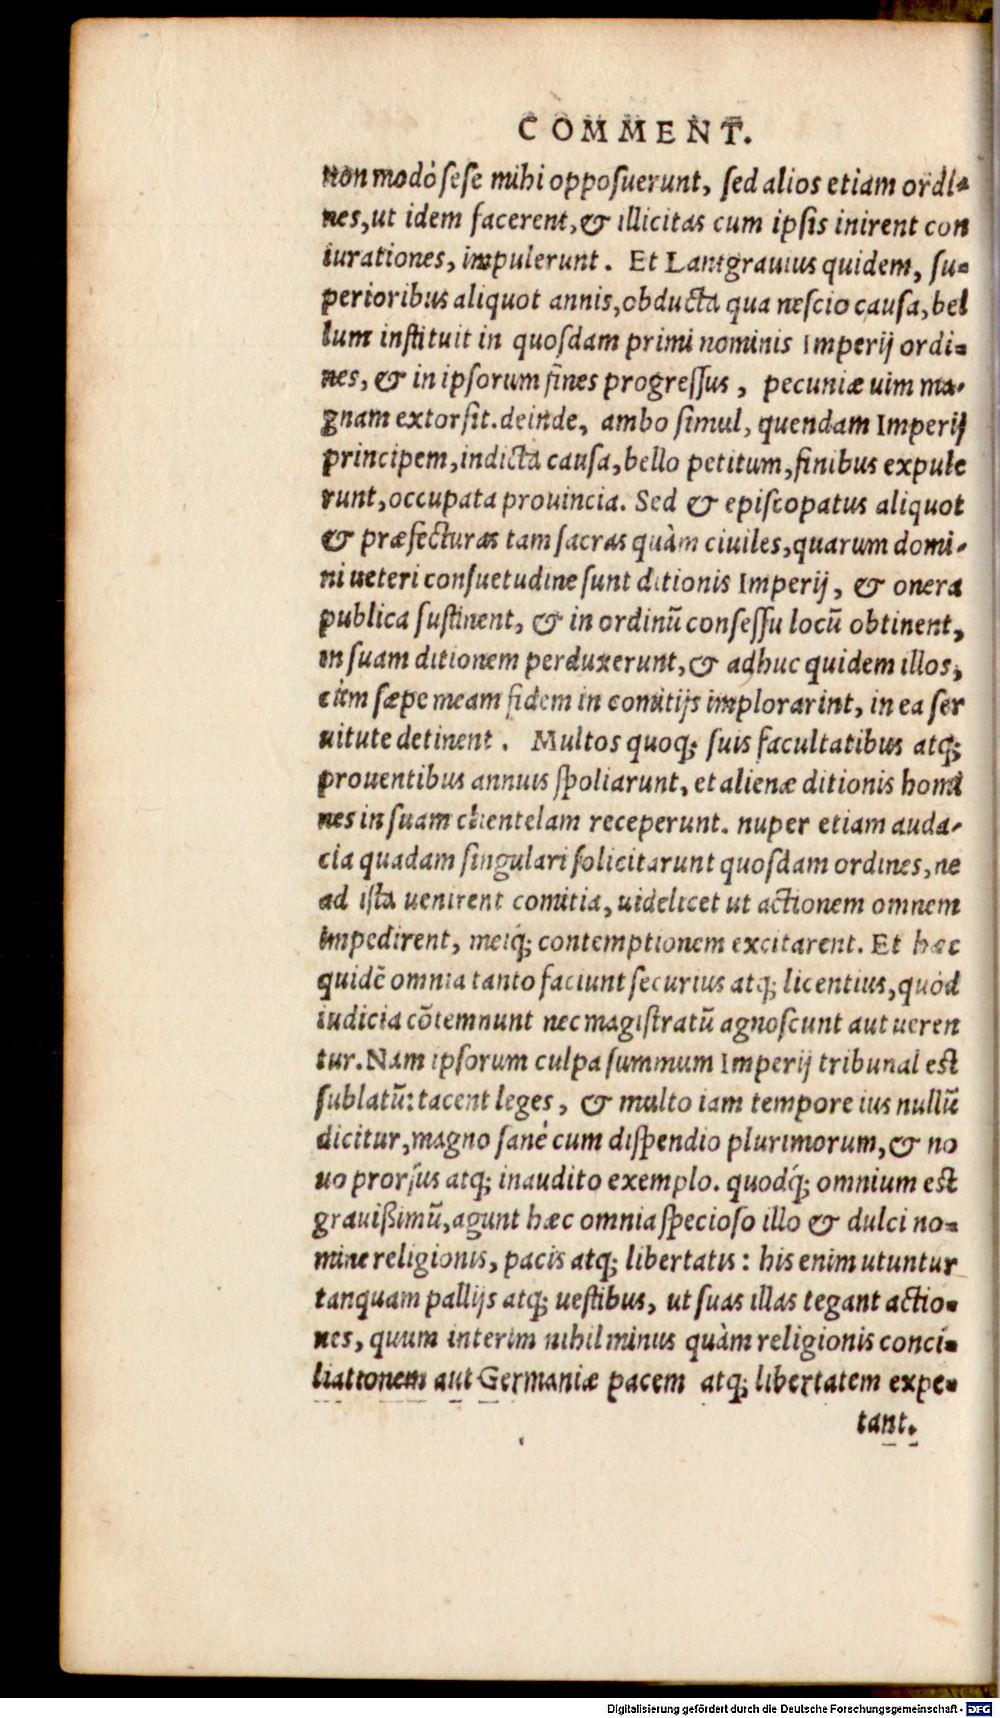 COMMENT.
non modò sese mihi opposuerunt, sed alios etiam ordi-
nes, ut idem facerent, & illicitas cum ipsis inirent con
iurationes, impulerunt. Et Lantgrauius quidem, su-
perioribus aliquot annis, obducta qua nescio causa, bel
lum instituit in quosdam primi nominis Imperij ordi-
nes, & in ipsorum fines progressus, pecuniæ uim ma-
gnam extorsit. deinde, ambo simul, quendam Imperij
principem, indicta causa, bello petitum, finibus expule
runt, occupata prouincia. Sed & episcopatus aliquot
& præfecturas tam sacras quàm ciuiles, quarum domi-
ni ueteri consuetudine sunt ditionis Imperij, & onera
publica sustinent, & in ordinū consessu locū obtinent,
in suam ditionem perduxerunt, & adhuc quidem illos,
cùm sæpe meam fidem in comitijs implorarint, in ea ser
uitute detinent. Multos quoq; suis facultatibus atq;
prouentibus annuis spoliarunt, et alienæ ditionis homi
nes in suam clientelam receperunt. nuper etiam auda-
cia quadam singulari solicitarunt quosdam ordines, ne
ad ista uenirent comitia, uidelicet ut actionem omnem
impedirent, meiq́; contemptionem excitarent. Et hæc
quidē omnia tanto faciunt securius atq; licentius, quòd
iudicia cōtemnunt nec magistratū agnoscunt aut ueren
tur. Nam ipsorum culpa summum Imperij tribunal est
sublatū: tacent leges, & multo iam tempore ius nullū
dicitur, magno sanè cum dispendio plurimorum, & no
uo prorsus atq; inaudito exemplo. quodq́; omnium est
grauißimū, agunt hæc omnia specioso illo & dulci no-
mine religionis, pacis atq; libertatis: his enim utuntur
tanquam pallijs atq; uestibus, ut suas illas tegant actio-
nes, quum interim nihil minus quàm religionis conci-
liationem aut Germaniæ pacem atq; libertatem expe-
tant.
Digitalisierung gefördert durch die Deutsche Forschungsgemeinschaft - DFG